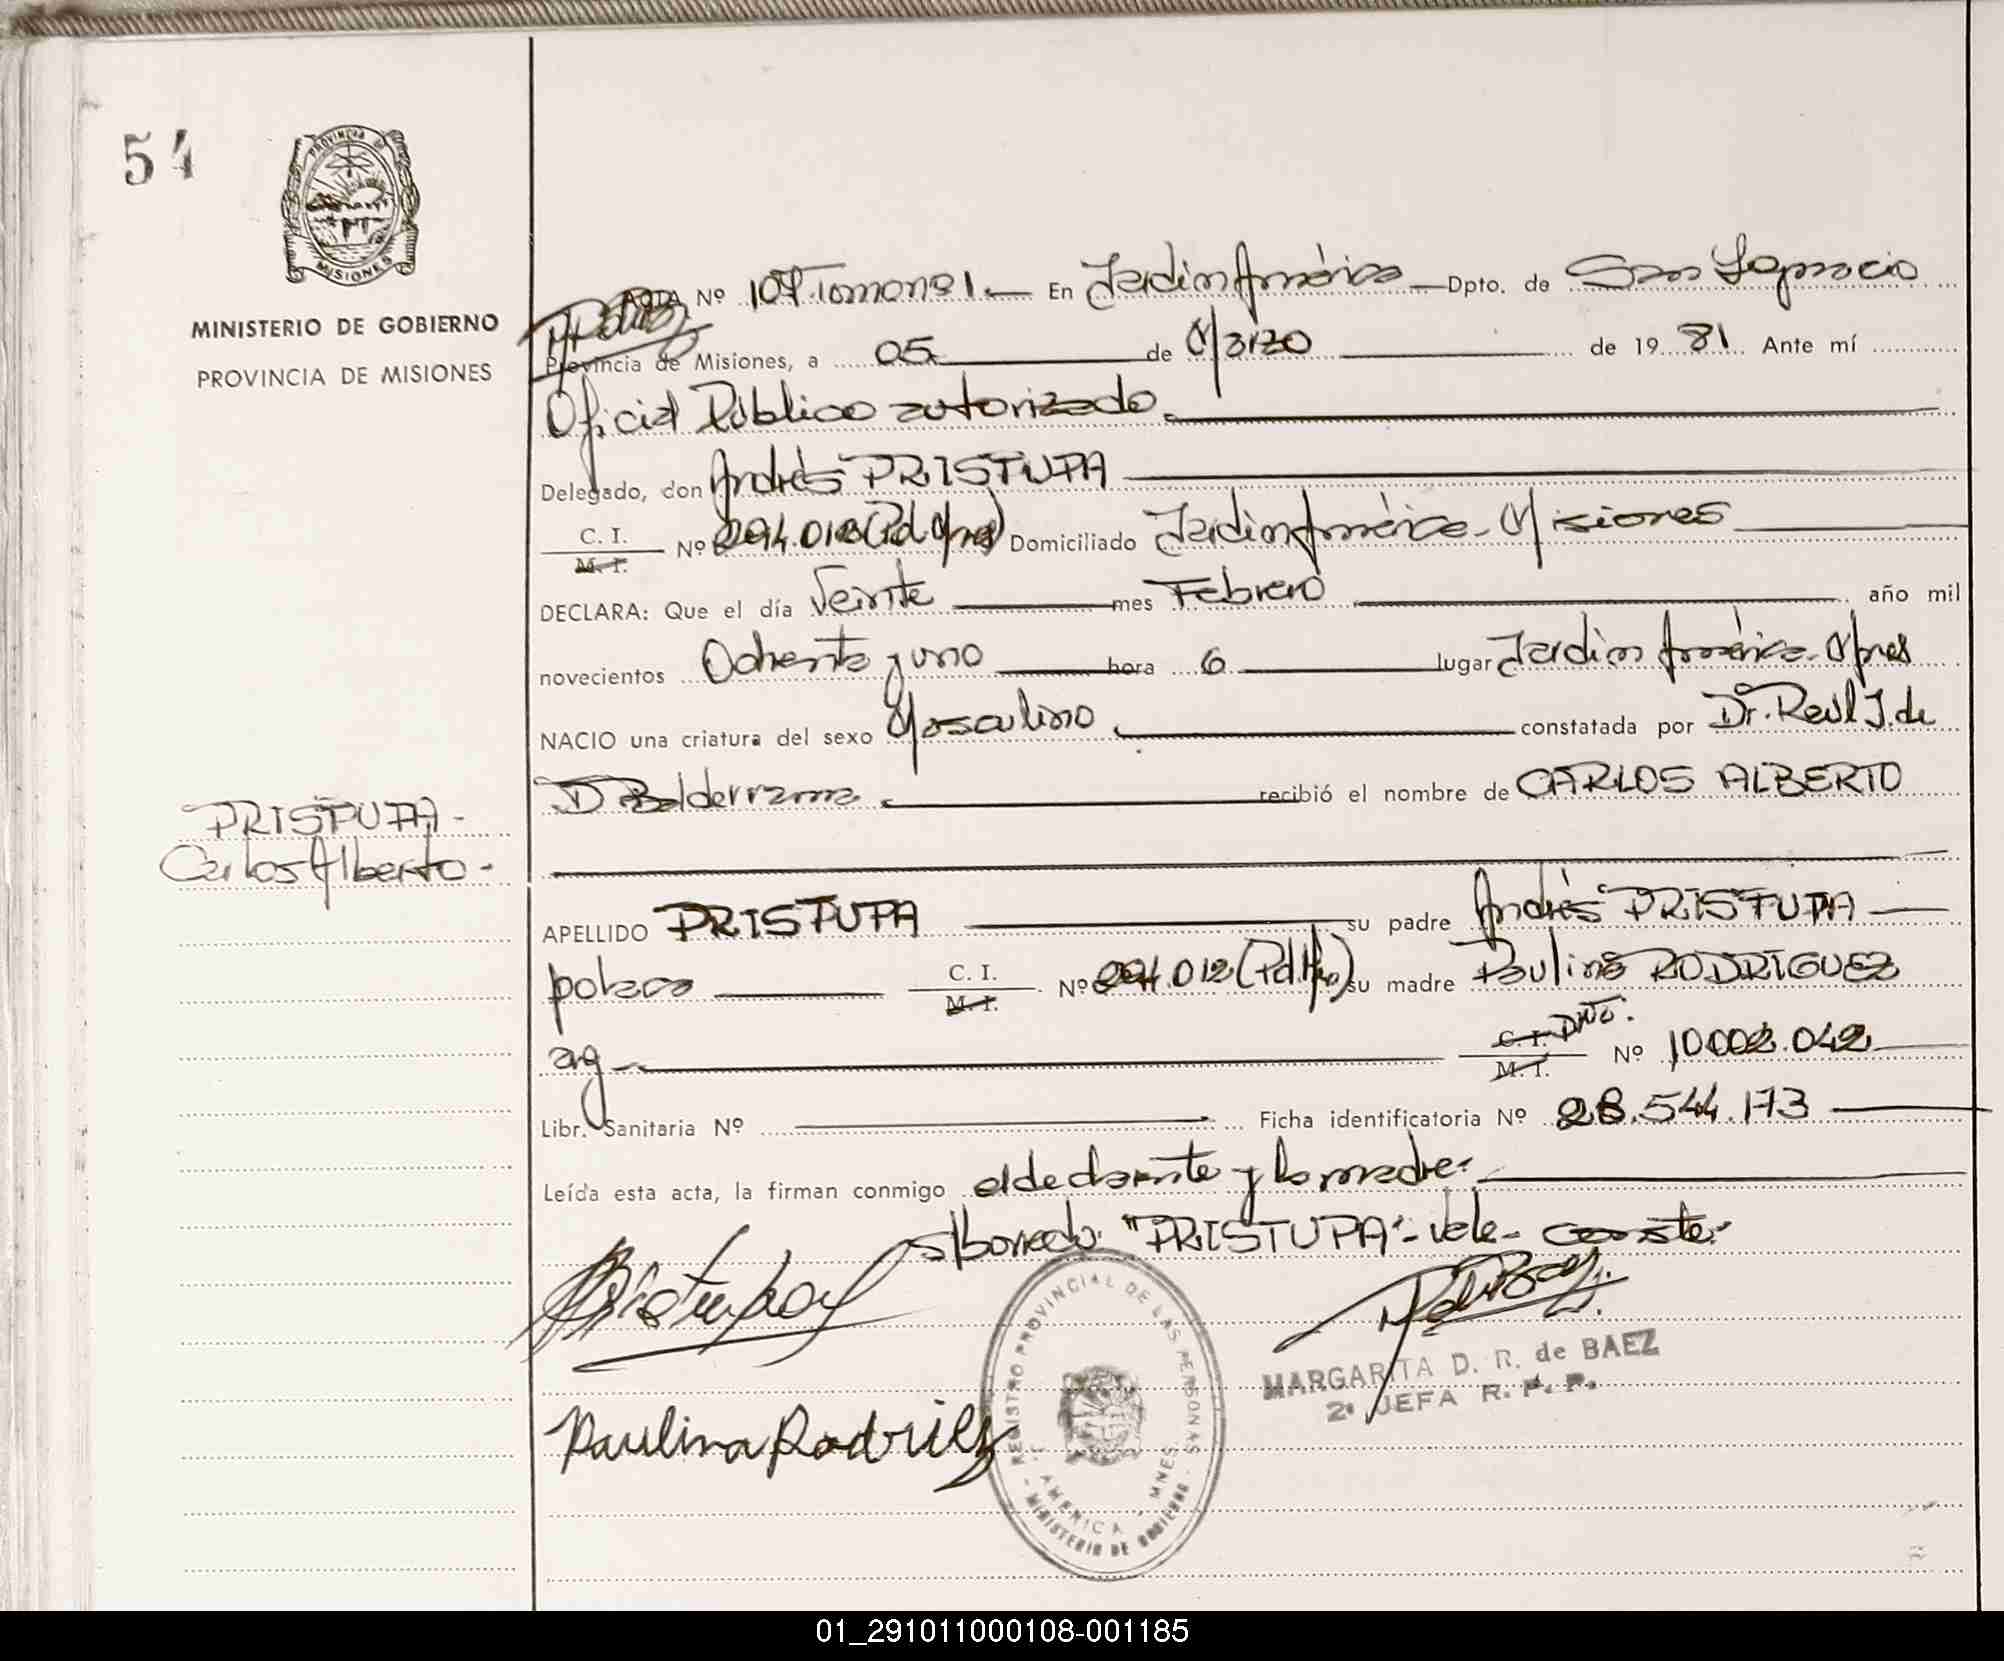 54
PROVINCIA DE
MISIONES
MINISTERIO DE GOBIERNO
PROVINCIA DE MISIONES
ACTA Nº 107 Tomo nº 1.— En Jardin América — Dpto. de San Ignacio
Provincia de Misiones, a 05 de Marzo de 1981 Ante mí
Oficial Público autorizado.
Delegado, don Andrés PRISTUPA
C. I.
M. I. Nº 294.012 (Pd. Mnes) Domiciliado Jardin América - Misiones
DECLARA: Que el día Veinte mes Febrero año mil
novecientos Ochenta y uno hora 6 lugar Jardin América - Mnes
NACIO una criatura del sexo Masculino constatada por Dr. Raúl J. de
D Balderrama recibió el nombre de CARLOS ALBERTO
PRISTUPA -
Carlos Alberto -
APELLIDO PRISTUPA su padre Andrés PRISTUPA
polaca C. I.
M. I. Nº 294.012 (Pd. Mnes) su madre Paulina RODRIGUEZ
arg C. I. DNI.
M. I. Nº 10002.042
Libr. Sanitaria Nº Ficha identificatoria Nº 28.544.173
Leída esta acta, la firman conmigo el declarante y la madre.
s/borrado: "PRISTUPA"- Vale - conste.
Paulina Rodriez
REGISTRO PROVINCIAL DE LAS PERSONAS
J. AMERICA MNES
- MINISTERIO DE GOBIERNO -
MARGARITA D. R. de BAEZ
2º JEFA R. P. P.
01_291011000108-001185